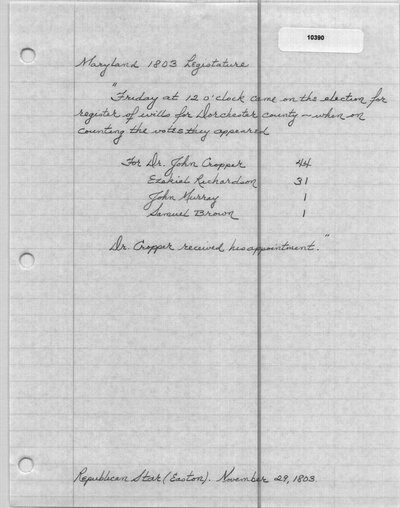 10390
Maryland 1803 Legislature
"Friday at 12 o'clock came on the election for
register of wills for Dorchester county - when on
counting the votes they appeared
For Dr. John Cropper 44
Ezekiel Richardson 31
John Murray 1
Samuel Brown 1
Dr. Cropper received his appointment."
Republican Star (Easton). November 29, 1803.